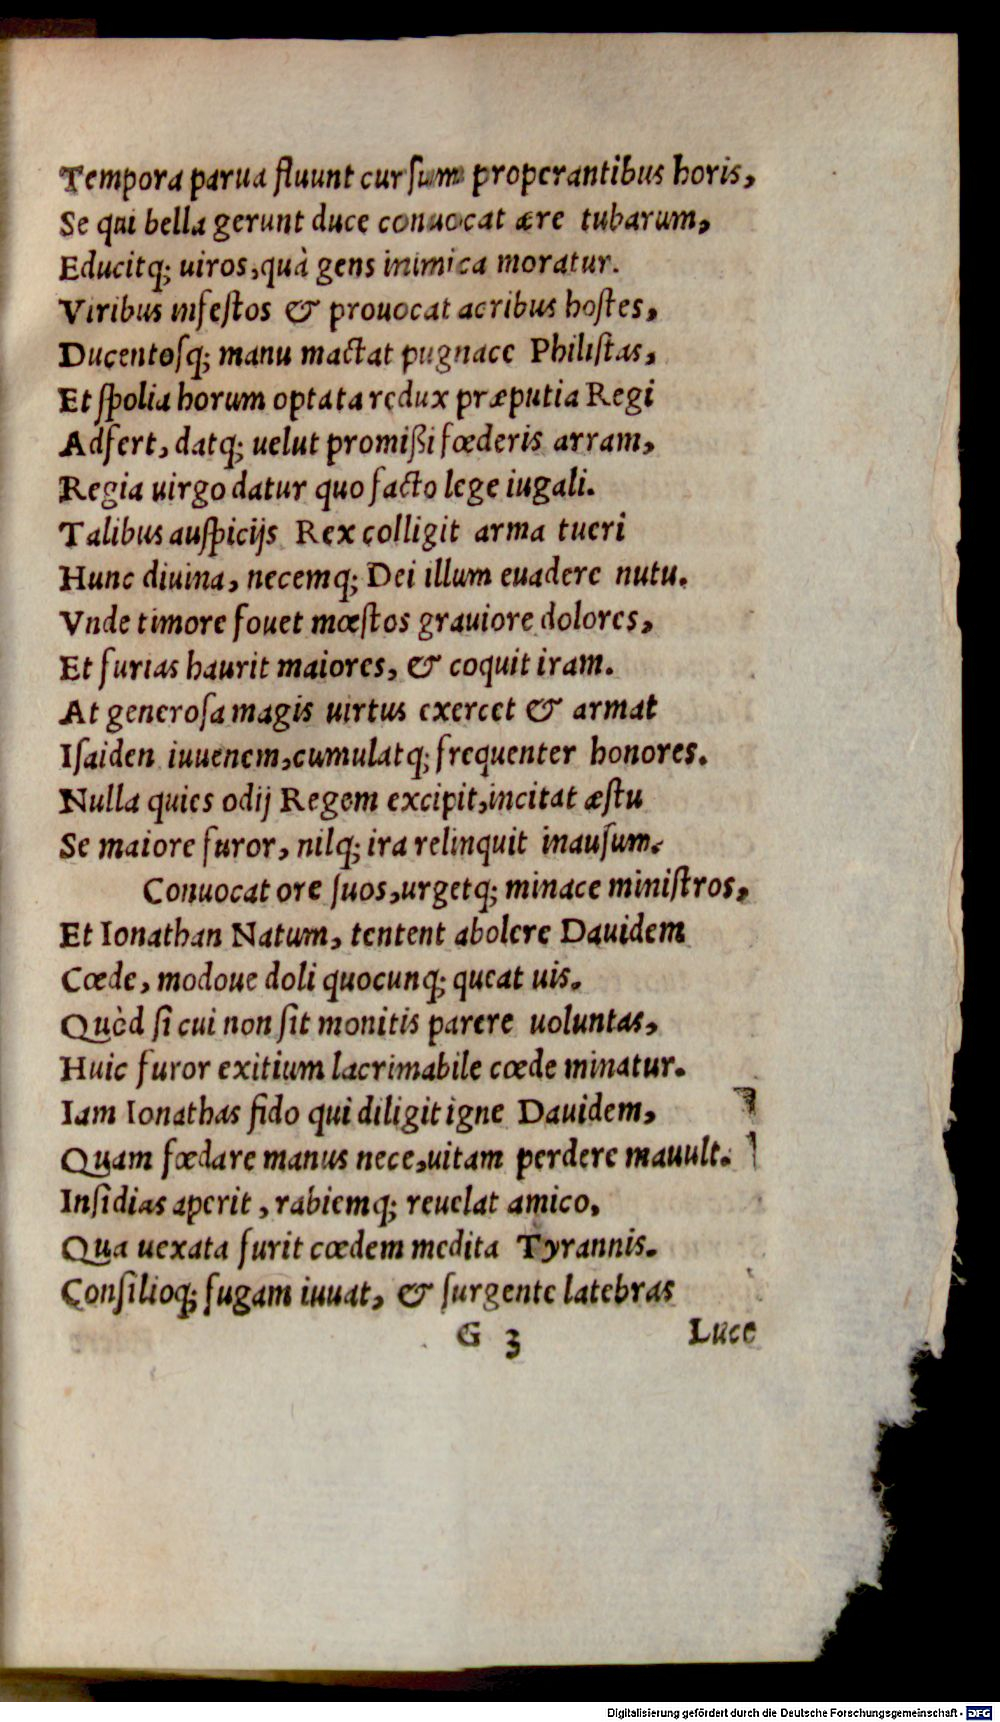 Tempora parua fluunt cursum properantibus horis,
Se qui bella gerunt duce conuocat ære tubarum,
Educitq; uiros, quà gens inimica moratur.
Viribus infestos & prouocat acribus hostes,
Ducentosq; manu mactat pugnace Philistas,
Et spolia horum optata redux præputia Regi
Adfert, datq; uelut promißi fœderis arram,
Regia uirgo datur quo facto lege iugali.
Talibus auspicijs Rex colligit arma tueri
Hunc diuina, necemq; Dei illum euadere nutu.
Vnde timore fouet mœstos grauiore dolores,
Et furias haurit maiores, & coquit iram.
At generosa magis uirtus exercet & armat
Isaiden iuuenem, cumulatq; frequenter honores.
Nulla quies odij Regem excipit, incitat æstu
Se maiore furor, nilq; ira relinquit inausum.
Conuocat ore suos, urgetq; minace ministros,
Et Ionathan Natum, tentent abolere Dauidem
Cœde, modoue doli quocunq; queat uis.
Quòd si cui non sit monitis parere uoluntas,
Huic furor exitium lacrimabile cœde minatur.
Iam Ionathas fido qui diligit igne Dauidem,
Quam fœdare manus nece, uitam perdere mauult.
Insidias aperit, rabiemq; reuelat amico,
Qua uexata furit cœdem medita Tyrannis.
Consilioq; fugam iuuat, & surgente latebras
G 3 Luce
Digitalisierung gefördert durch die Deutsche Forschungsgemeinschaft - DFG